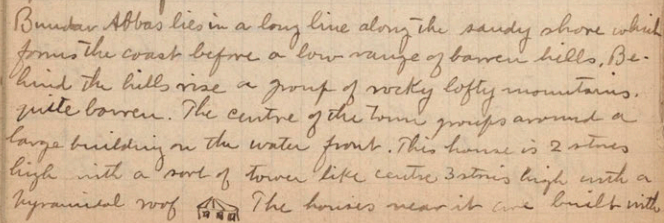 Bundar Abbas lies in a long line along the sandy shore which
forms the coast before a low range of barren hills. Be-
hind the hills rise a group of rocky lofty mountains.
quite barren. The centre of the town groups around a
large building on the water front. This house is 2 stories
high with a sort of tower like centre 3 stories high with a
pyramical roof The houses near it are built with